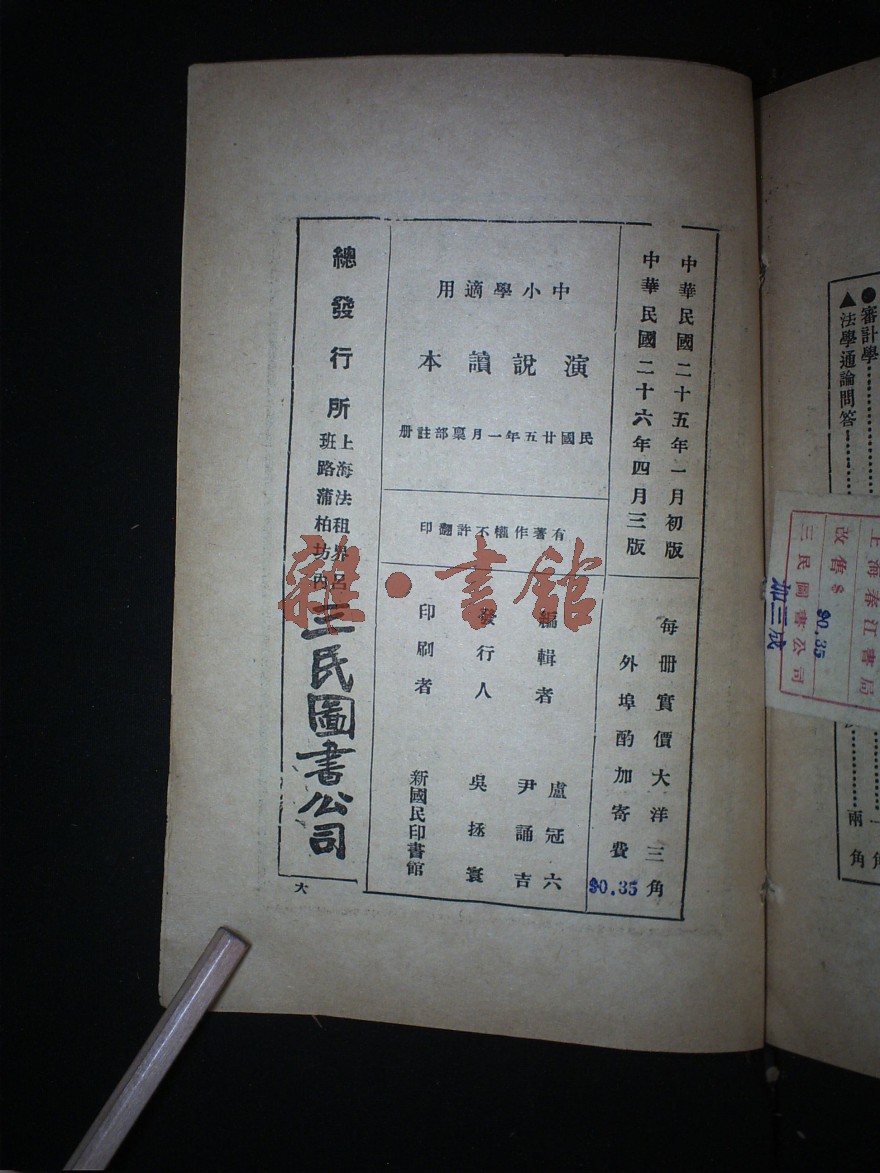 中華民國二十五年一月初版
中華民國二十六年四月三版
每册實價大洋三角
外埠酌加寄費
$0.35
中小學適用
演說讀本
民國廿五年一月稟部註册
有著作權不許翻印
編輯者 盧冠六 尹誦吉
發行人 吳拯寰
印刷者 新國民印書館
總發行所
上海法租界呂
班路蒲柏坊內
三民圖書公司
大
雜·書館
●審計學
▲法學通論問答
兩角
上海春江書局
改售$
$0.35
三民圖書公司
加二成